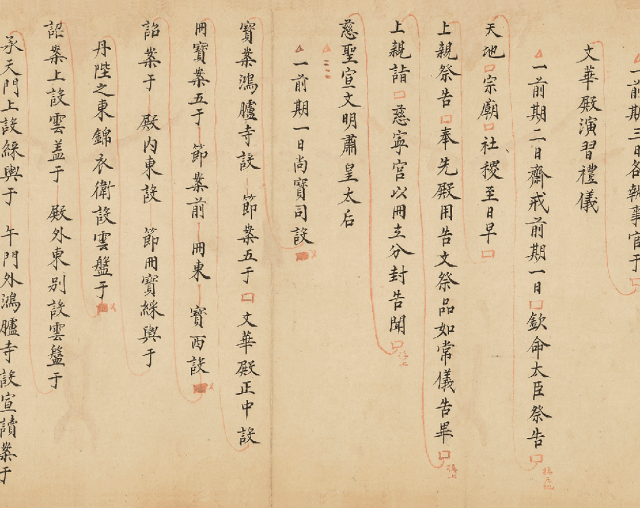 一前期三日各執事官于
文華殿演習禮儀
一前期二日齋戒前期一日欽命大臣祭告
天地宗廟社稷至日早
上親祭告奉先殿用告文祭品如常儀告畢
上親詣慈寧宮以冊立分封告聞
慈聖宣文明肅皇太后
一前期一日尚寶司設
寶案鴻臚寺設節案五于文華殿正中設
冊寶案五于節案前冊東寶西設
詔案于殿內東設節冊寶綵輿于
丹陛之東錦衣衛設雲盤于
詔案上設雲盖于殿外東別設雲盤于
承天門上設綵輿于午門外鴻臚寺設宣讀案于